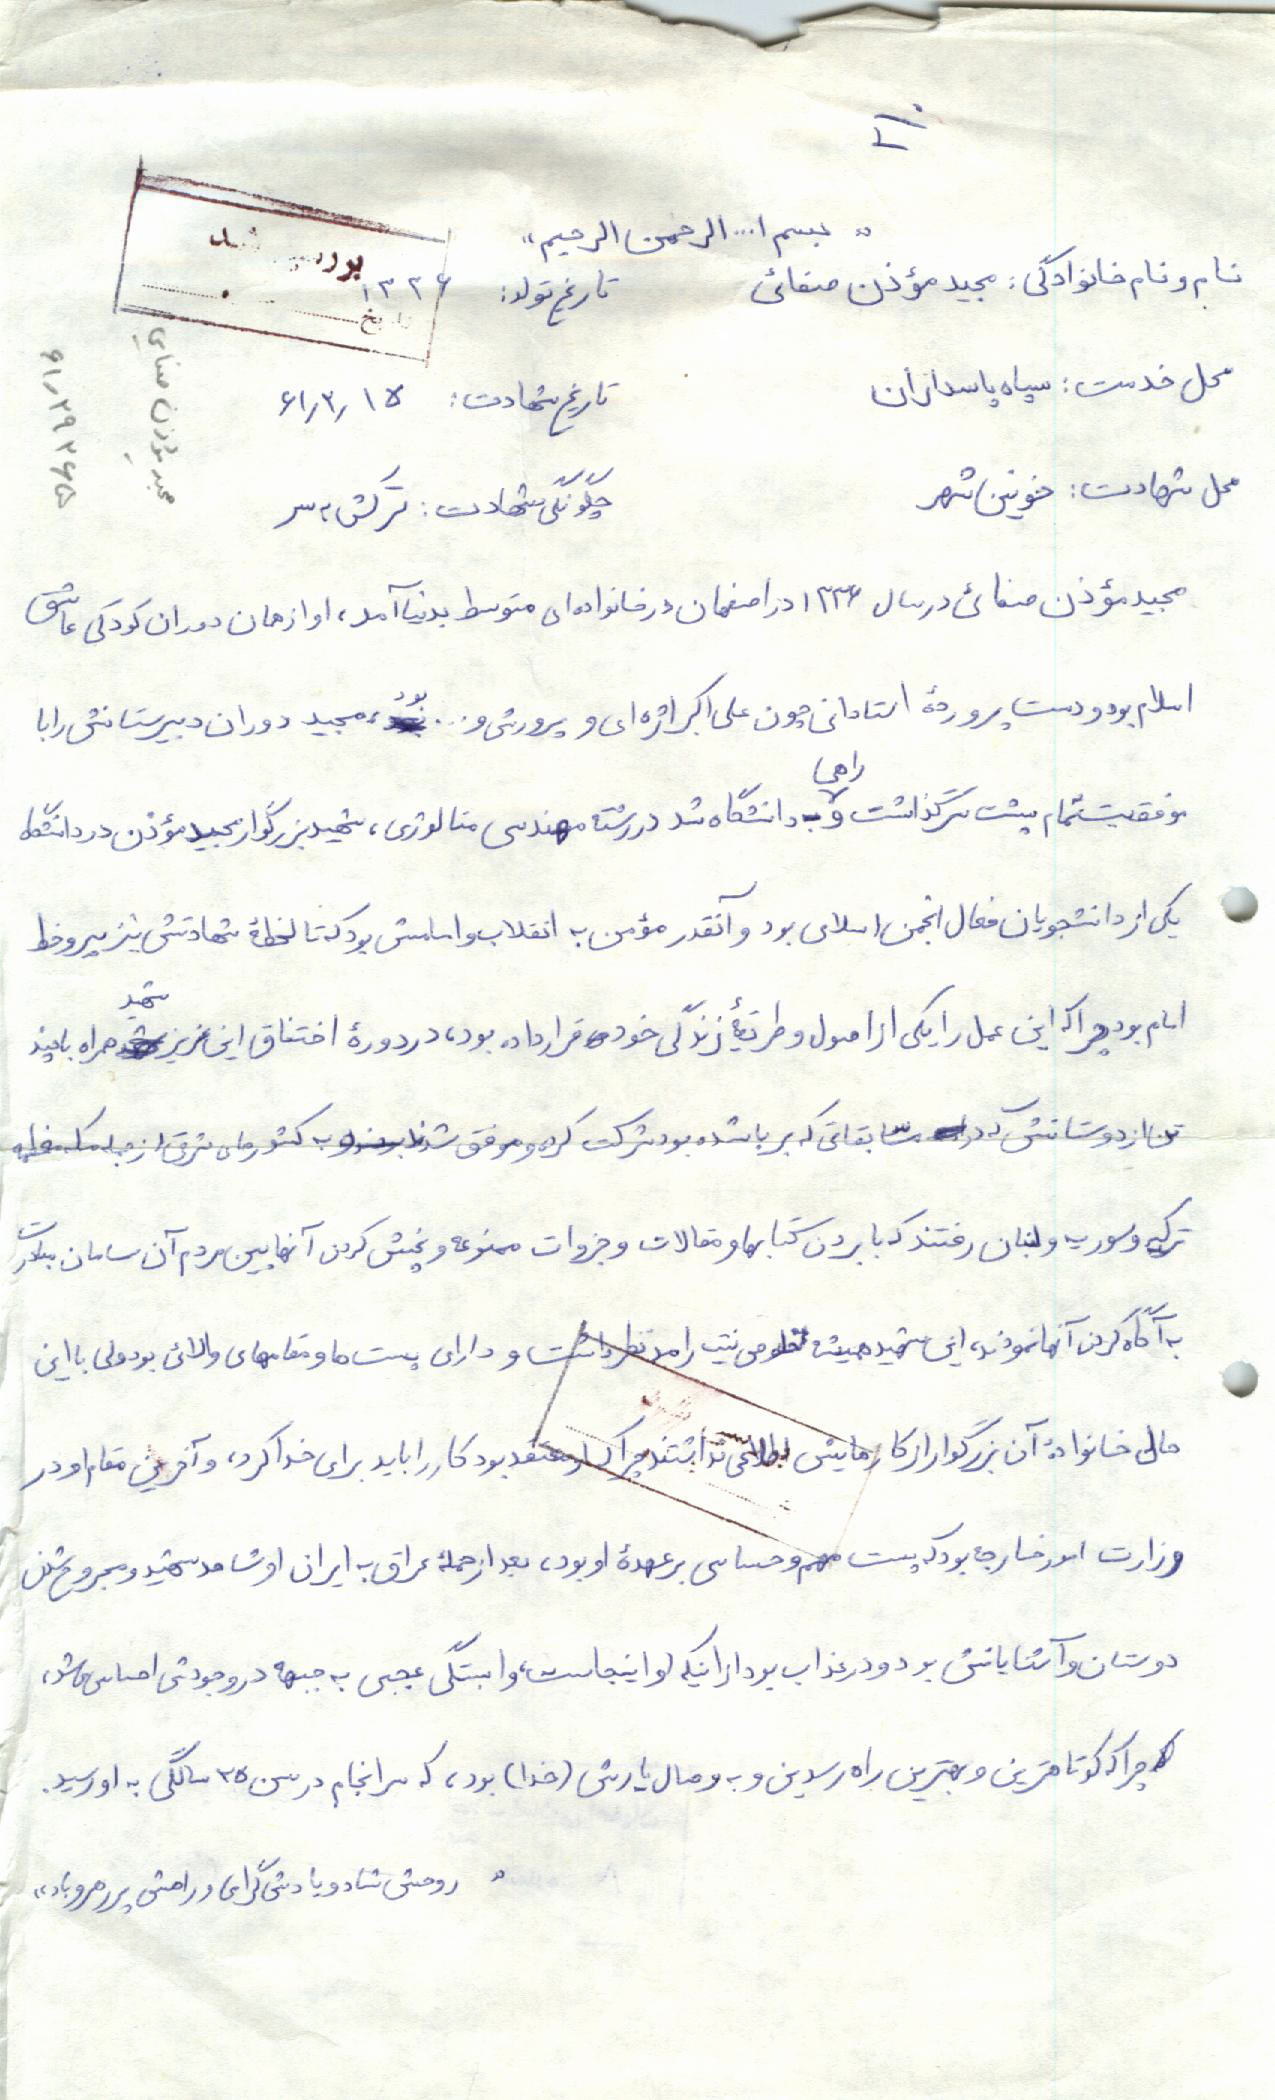 « بسم ا... الرحمن الرحیم »
نام و نام خانوادگی: مجید مؤذن صفائی تاریخ تولد: ۱۳۳۶
محل خدمت: سپاه پاسداران تاریخ شهادت: ۶۱٫۳٫۱۵
محل شهادت: خونین شهر چگونگی شهادت: ترکش به سر
بررسی شد
تاریخ
مجید مؤذن صفایی
مجید مؤذن صفائی در سال ۱۳۳۶ در اصفهان در خانواده ای متوسط بدنیا آمد، او از همان دوران کودکی عاشق
اسلام بود و دست پروردهٔ استادانی چون علی اکبر اژه ای و پرورش و ... بود، مجید دوران دبیرستانش را با
موفقیت تمام پشت سر گذاشت و راهی دانشگاه شد در رشتهٔ مهندسی متالوژی، شهید بزرگوار مجید مؤذن در دانشگاه
یکی از دانشجویان فعال انجمن اسلامی بود و آنقدر مؤمن به انقلاب و امامش بود که تا لحظهٔ شهادتش نیز پیرو خط
امام بود چرا که این عمل را یکی از اصول و طریقهٔ زندگی خود قرار داده بود، در دورهٔ اختناق این عزیز شهید همراه با چند
تن از دوستانش که در مسابقاتی که برپا شده بود شرکت کرده و موفق شدند به کشورهای شرق از جمله مکه معظمه
ترکیه و سوریه و لبنان رفتند که با بردن کتابها و مقالات و جزوات ممنوعه و پخش کردن آنها بین مردم آن سامان مبادرت
به آگاه کردن آنها نمودند، این شهید همیشه خلوص نیت را مد نظر داشت و دارای پست ها و مقامهای والائی بود ولی با این
حال خانوادهٔ آن بزرگوار از کارهایش اطلاعی نداشتند چرا که او معتقد بود کار را باید برای خدا کرد، و آخرین مقام او در
وزارت امور خارجه بود که پست مهم و حساسی بر عهدهٔ او بود، بعد از حملهٔ عراق به ایران او شاهد شهید و مجروح شدن
دوستان و آشنایانش بود و در عذاب بود از اینکه او اینجاست، وابستگی عجیبی به جبهه در وجودش احساس میشد،
چرا که کوتاهترین و بهترین راه رسیدن و به وصال یارش (خدا) بود، که سرانجام در سن ۲۵ سالگی به او رسید.
« روحش شاد و یادش گرامی و راهش پر رهرو باد »